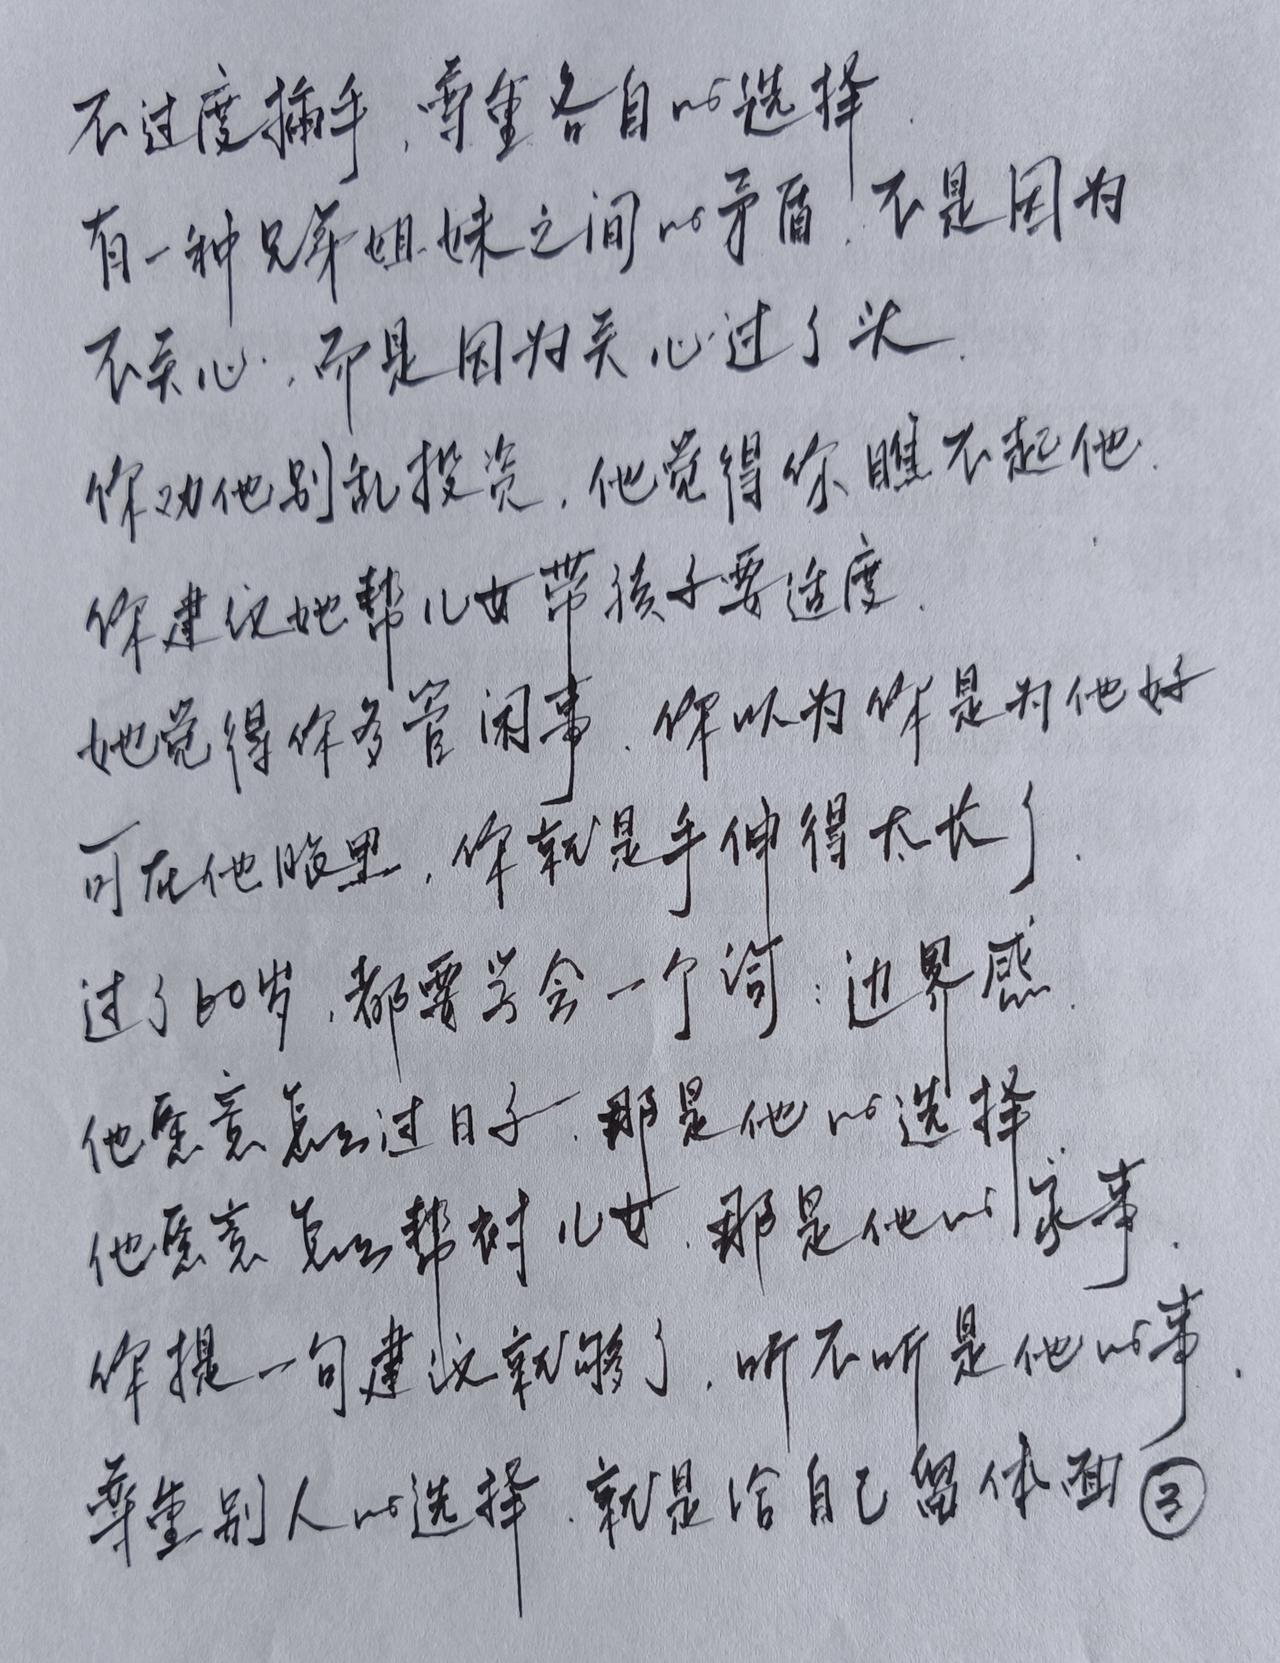 不过度插手，尊重各自的选择.
有一种兄弟姐妹之间的矛盾，不是因为
不关心，而是因为关心过了头.
你劝他别乱投资，他觉得你瞧不起他.
你建议她帮儿女带孩子要适度.
她觉得你多管闲事，你以为你是为他好
可在他眼里，你就是手伸得太长了.
过了60岁，都要学会一个词：边界感.
他愿意怎么过日子，那是他的选择.
他愿意怎么帮衬儿女，那是他的家事.
你提一句建议就够了，听不听是他的事.
尊重别人的选择，就是给自己留体面③